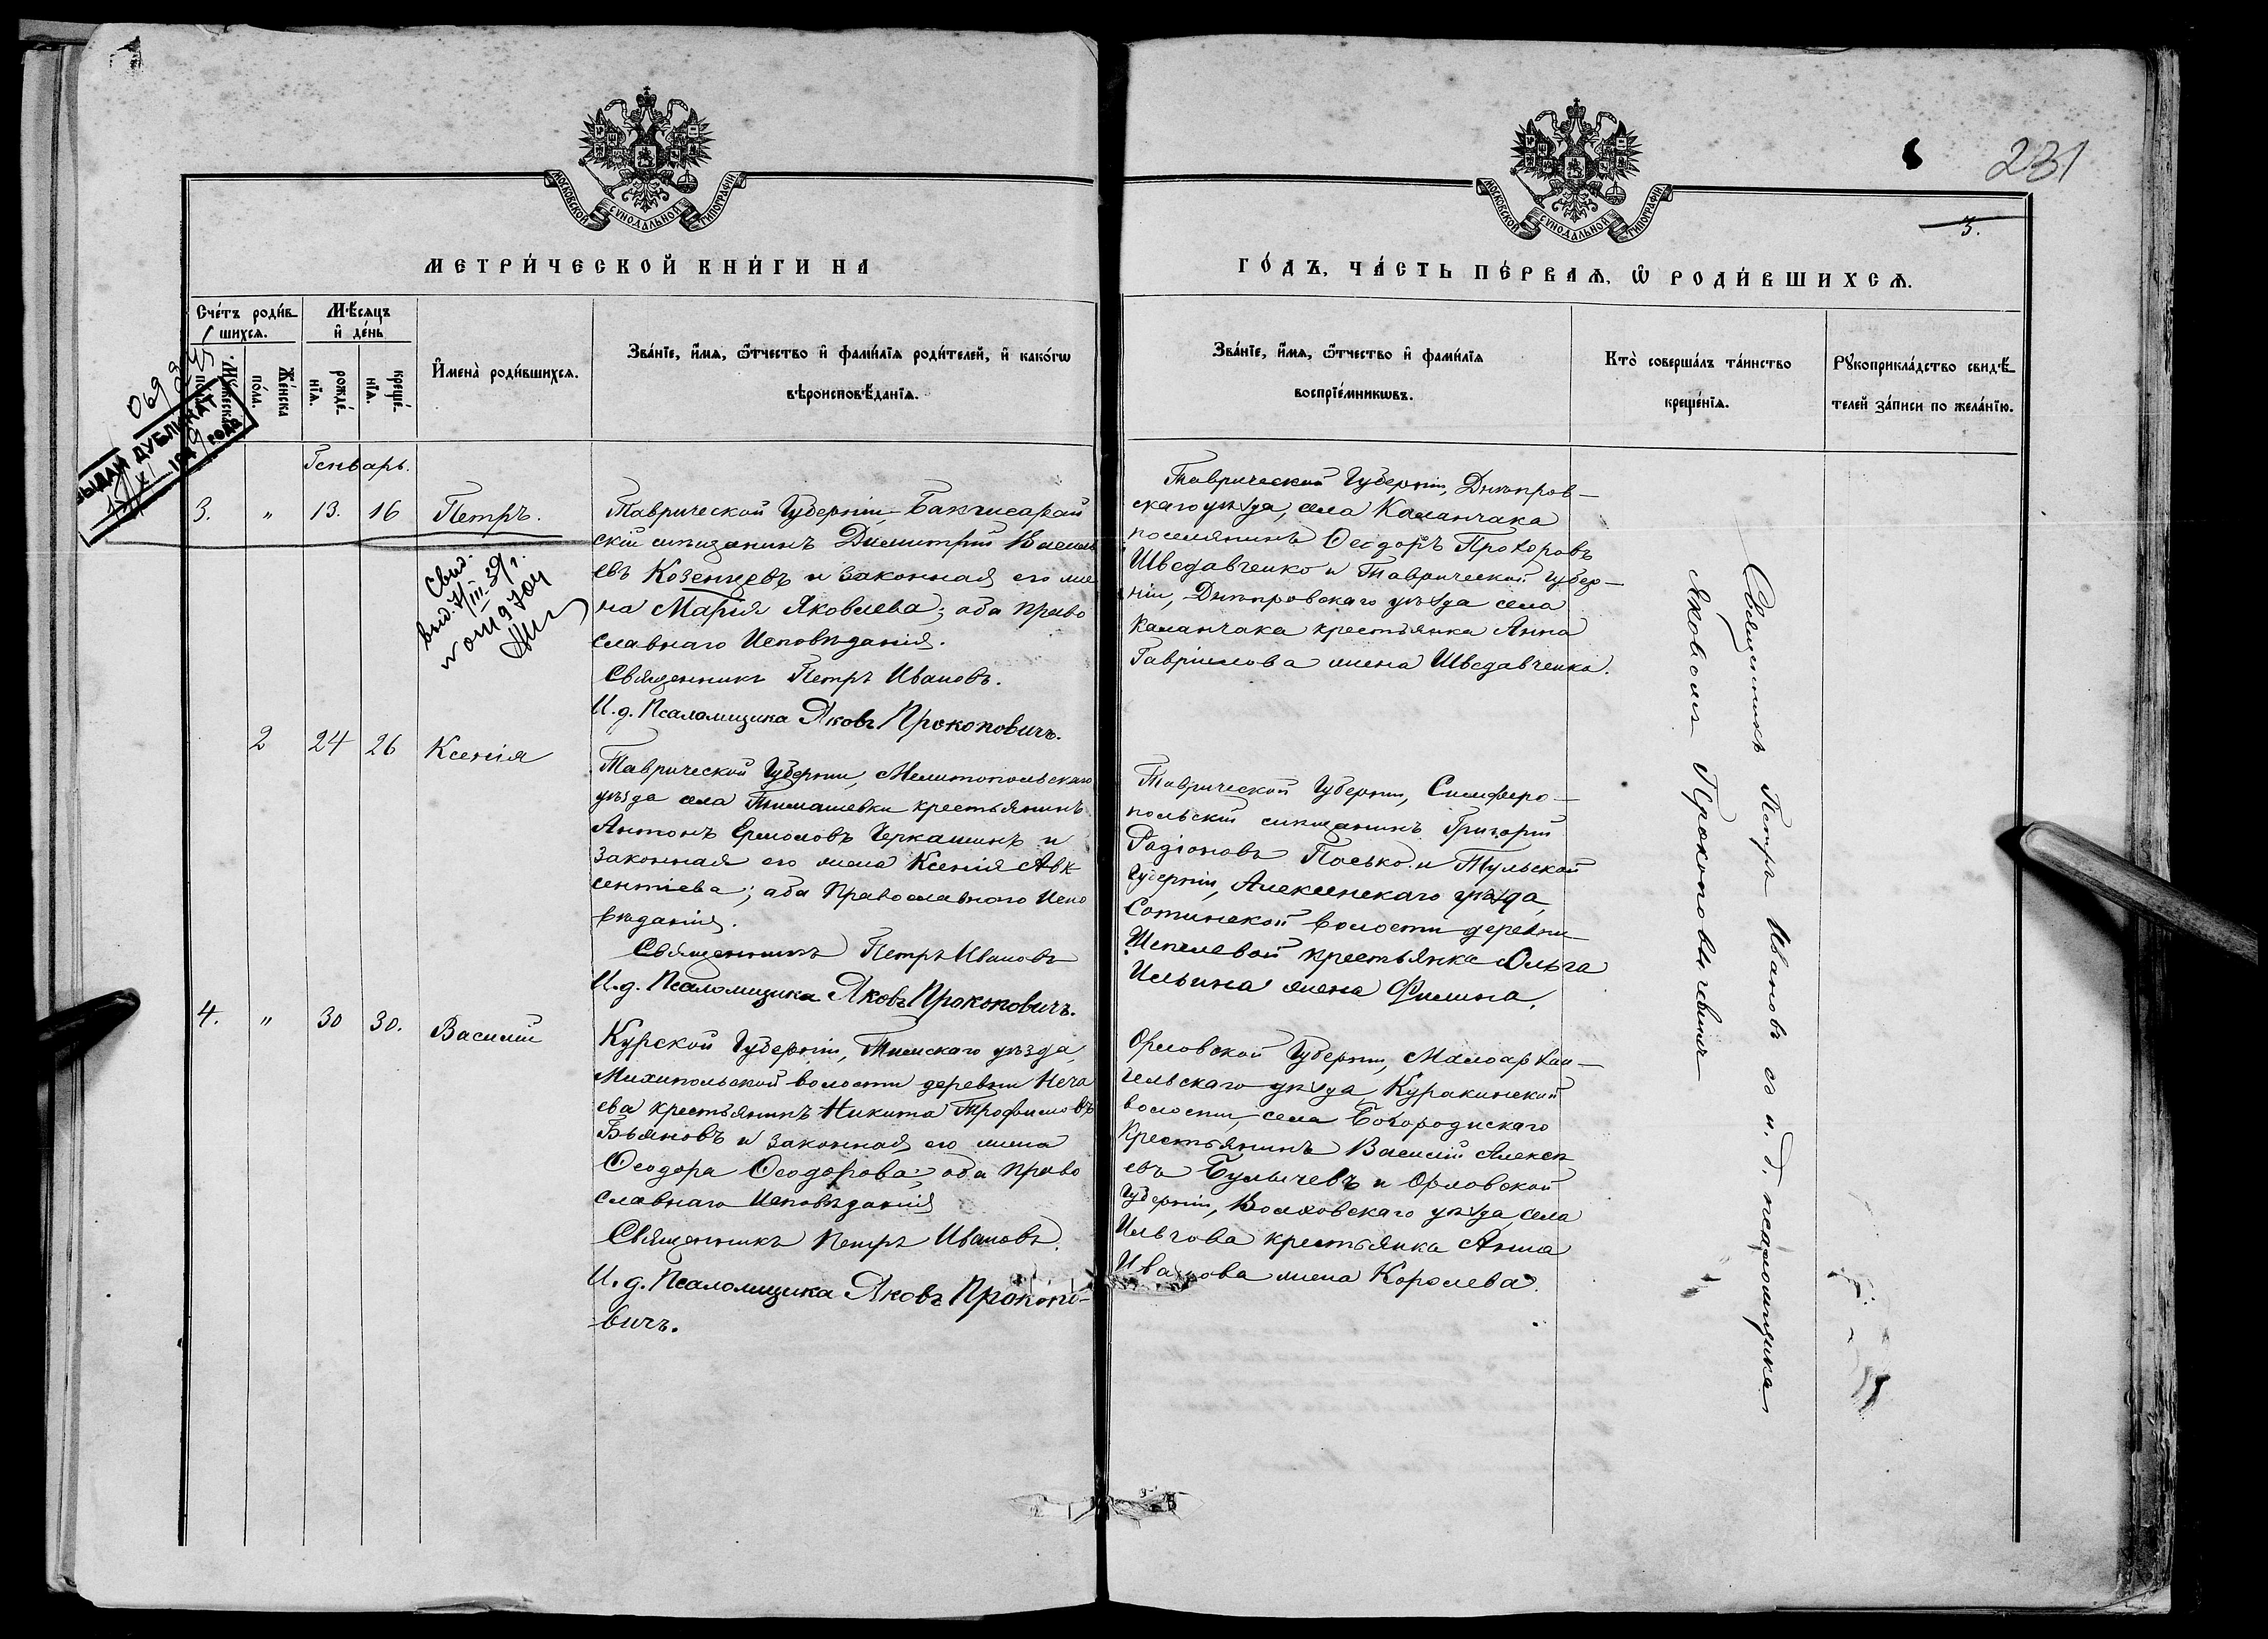 МОСКОВСКОЙ СѴНОДАЛЬНОЙ ТИПОГРАФІИ
МЕТРИ́ЧЕСКОЙ КНИ́ГИ НА
Сче́тъ роди́в-
шихся.
Мѣ́сяцъ
и҆ де́нь
Му́жеска по́ла.
Же́нска по́ла.
рожде́-
нїѧ.
креще́-
нїѧ.
И҆мена̀ роди́вшихсѧ.
Зва́нїе, и҆́мѧ, ѻ҆́тчество и҆ фами́лїѧ роди́телей, и҆ како́гѡ
вѣроисповѣ́данїѧ.
069
ВЫДАН ДУБЛИКАТ
года
Генварь.
3. " 13. 16 Петръ.
Таврической Губерніи, Бахчисарай
скій мѣщанинъ Димитрій Василь
евъ Козенцевъ и законная его же
на Марія Яковлева; оба право
славнаго Исповѣданія.
Священникъ Петръ Ивановъ.
И.д. Псаломщика Яковъ Прокоповичъ.
Свид.
выд. 7/III 39 г.
2 24 26 Ксенія
Таврической Губерніи, Мелитопольскаго
уѣзда села Тимашевки крестьянинъ
Антонъ Ермоловъ Черкашинъ и
законная его жена Ксенія Авк
сентіева; оба Православнаго Испо
вѣданія.
Священникъ Петръ Ивановъ
И.д. Псаломщика Яковъ Прокоповичъ.
4. " 30 30. Василій
Курской Губерніи, Тимскаго уѣзда,
волости деревни Неча
ева крестьянинъ Никита Трофимовъ
и законная его жена
Ѳеодора Ѳеодорова; оба право
славнаго Исповѣданія
Священникъ Петръ Ивановъ.
И.д. Псаломщика Яковъ Прокопо-
вичъ.
МОСКОВСКОЙ СѴНОДАЛЬНОЙ ТИПОГРАФІИ
231
3.
ГО́ДЪ, ЧА́СТЬ ПЕ́РВАѦ, Ѡ҆ РОДИ́ВШИХСѦ.
Зва́нїе, и҆́мѧ, ѻ҆́тчество и҆ фами́лїѧ
воспрїе́мникѡвъ.
Кто̀ соверша́лъ та́инство
креще́нїѧ.
Рꙋкоприкла́дство свидѣ́-
телей за́писи по жела́нїю.
Таврической Губерніи, Днѣпров-
скаго уѣзда, села Каланчака
поселянинъ Ѳеодоръ Прохоровъ
Шведавченко и Таврической Губер-
ніи, Днѣпровскаго уѣзда села
Каланчака крестьянка Анна
Гавріилова жена Шведавченка.
Таврической Губерніи, Симферо-
польскій мѣщанинъ Григорій
Радіоновъ Посько и Тульской
Губерніи, Алексинскаго уѣзда,
Сотинской волости деревни
крестьянка Ольга
Ильина жена Филина.
Орловской Губерніи, Малоархан-
гельскаго уѣзда, Куракинской
волости, села Богородискаго
Крестьянинъ Василій Алексѣ
евъ Булычевъ и Орловской
Губерніи, Волховскаго уѣзда, села
Ильгова крестьянка Анна
Иванова жена Королева.
Священникъ Петръ Ивановъ съ и. д. псаломщика
Яковомъ Прокоповичемъ